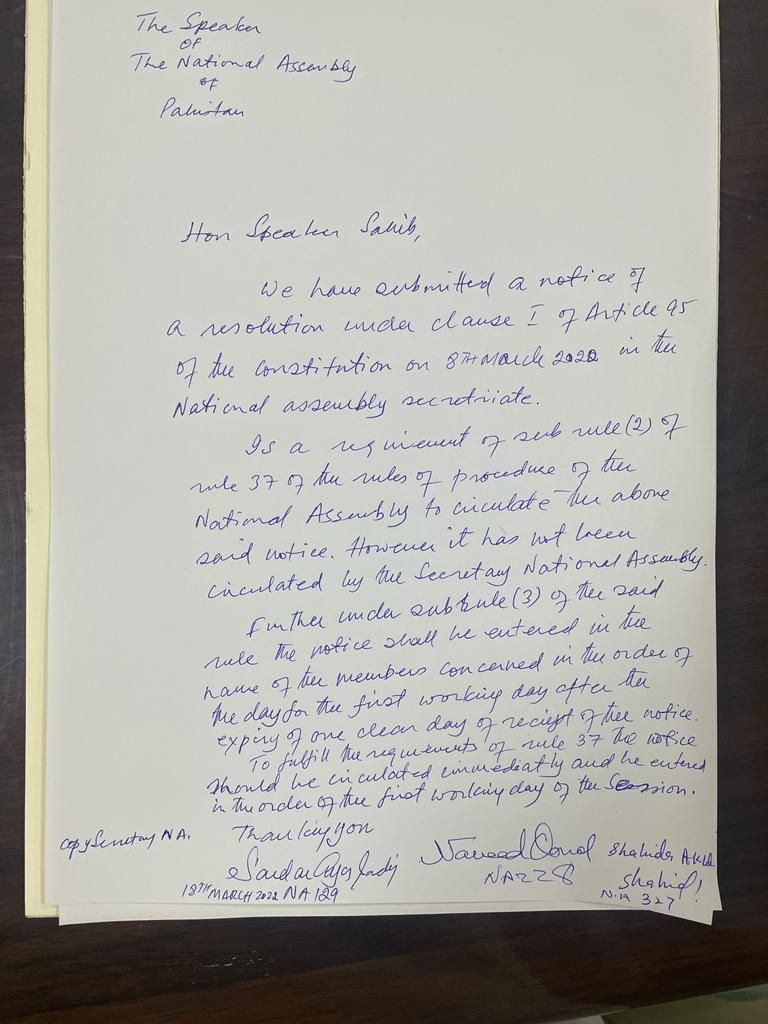 The Speaker
of
The National Assembly
of
Pakistan
Hon Speaker Sahib,
We have submitted a notice of
a resolution under clause I of Article 95
of the constitution on 8TH March 2022 in the
National assembly secretriate.
Is a requiement of sub rule (2) of
rule 37 of the rules of procedure of the
National Assembly to circulate the above
said notice. However it has not been
circulated by the Secretary National Assembly.
Further under subrule (3) of the said
rule the notice shall be entered in the
name of the members concerned in the order of
the day for the first working day after the
expiry of one clear day of reciept of the notice.
To fulfill the requiements of rule 37 the notice
should be circulated immediatly and be entered
in the order of the first working day of the Session.
copy Secretary NA.
Thanking you
Sardar Ayaz Sadiq
18TH MARCH 2022 NA 129
Naveed Qamar
NA 228
Shahida
Shahid
N.A 327